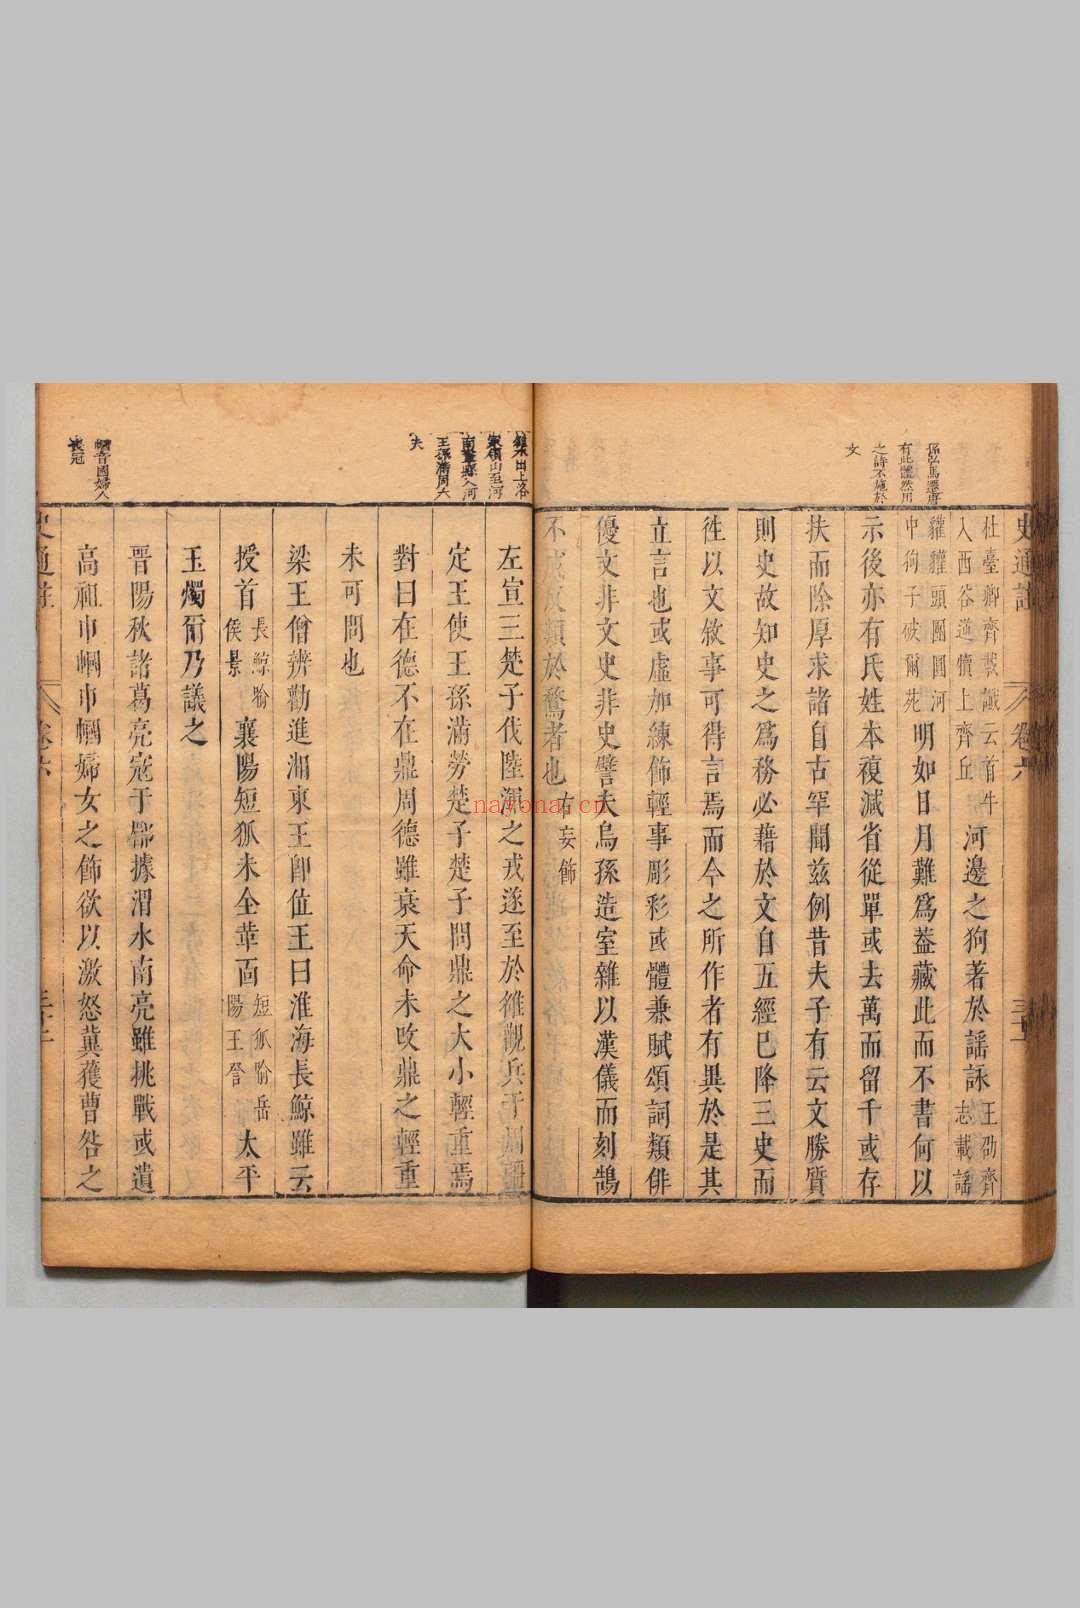 孫弘馬遷唐
有此體然用
之詩不施於
文
史通註
卷六
三十一
杜臺卿齊載讖云首牛
入西谷逆犢上齊丘
河邊之狗著於謡詠
王劭齊
志載謡
貛貛頭團圓河
中狗子破爾苑
明如日月難爲蓋藏此而不書何以
示後亦有氏姓本複減省從單或去萬而留千或存
扶而除厚求諸自古罕聞兹例昔夫子有云文勝質
則史故知史之爲務必藉於文自五經已降三史而
徃以文敘事可得言焉而今之所作者有異於是其
立言也或虛加練飾輕事彫彩或體兼賦頌詞類俳
優文非文史非史譬夫烏孫造室雜以漢儀而刻鵠
不成反類於鶩者也
右妄飾
雒水出上洛
冢領山至河
南鞏縣入河
王孫滿周大
夫
左宣三楚子伐陸渾之戎遂至於雒觀兵于周疆
定王使王孫滿勞楚子楚子問鼎之大小輕重焉
對曰在德不在鼎周德雖衰天命未改鼎之輕重
未可問也
梁王僧辨勸進湘東王卽位王曰淮海長鯨雖云
授首
長鯨喻
侯景
襄陽短狐未全革面
短狐喻岳
陽王詧
太平
玉燭爾乃議之
晋陽秋諸葛亮寇于郿據渭水南亮雖挑戰或遺
幗音國婦人
喪冠
高祖巾幗巾幗婦女之飾欲以激怒冀獲曹咎之
史通註
卷六
nayona.cn